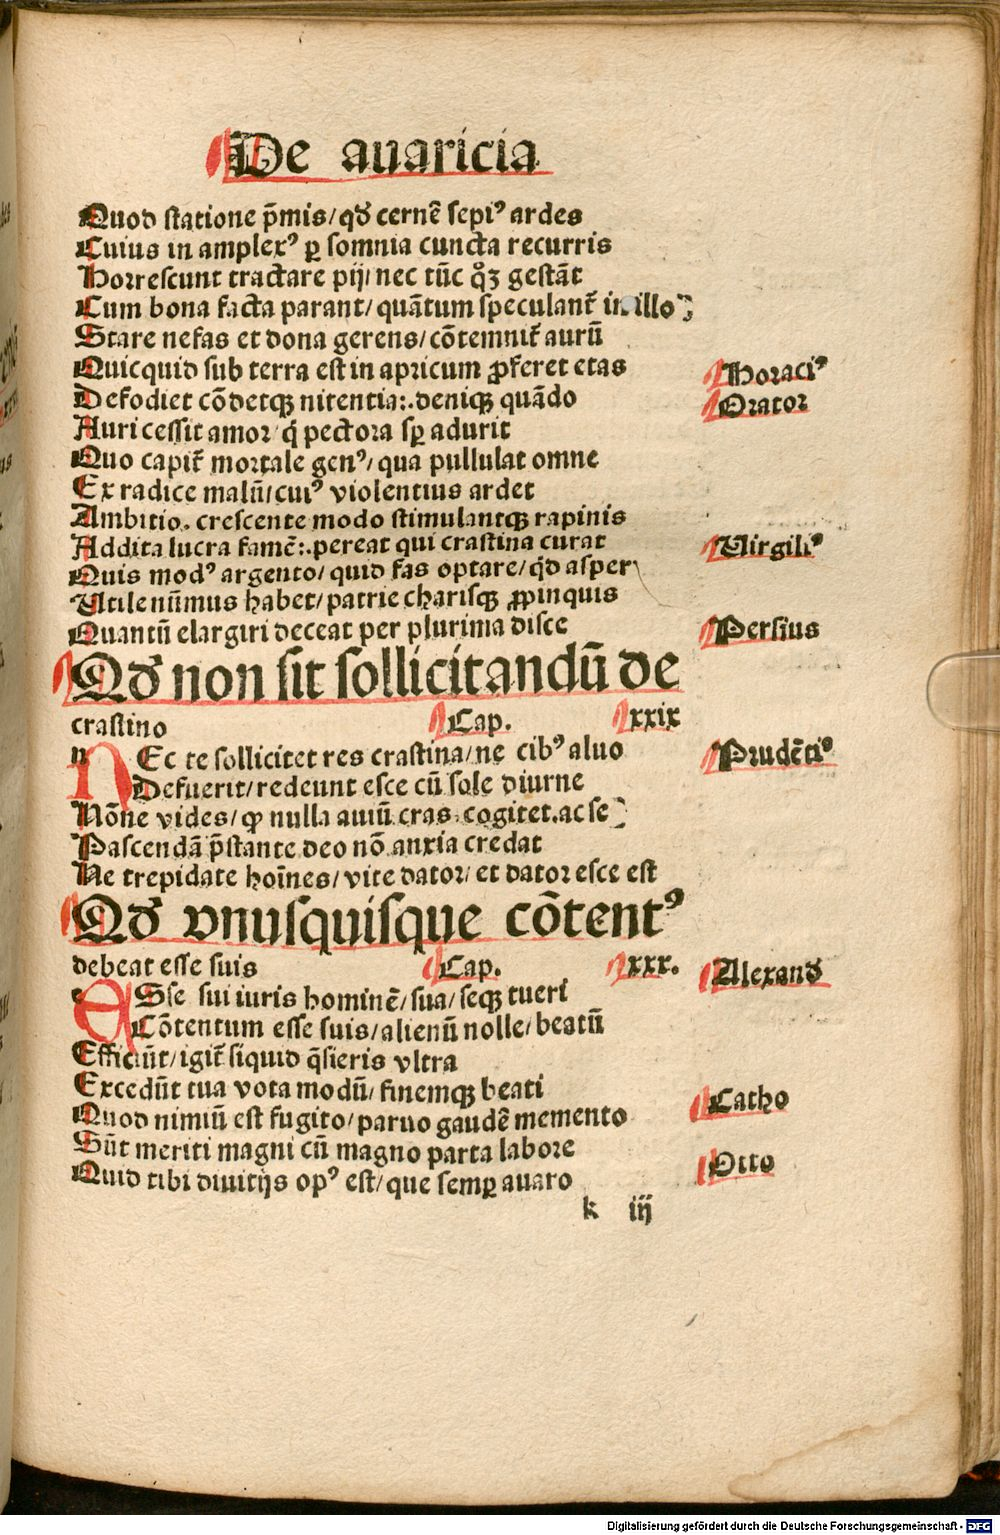 De auaricia
Quod statione p̄mis/qđ cernē sepiꝰ ardes
Cuius in amplexꝰ ꝑ somnia cuncta recurris
Horrescunt tractare pij/nec tūc qͦꝫ gestāt
Cum bona facta parant/quātum speculant᷑ in illo
Stare nefas et dona gerens/cōtemnit᷑ aurū
Quicquid sub terra est in apricum ꝓferet etas
Horaciꝰ
Defodiet cōdetqꝫ nitentia:.deniqꝫ quādo
Orator
Auri cessit amor q̇ pectora sꝑ adurit
Quo capit᷑ mortale genꝰ/qua pullulat omne
Ex radice malū/cuiꝰ violentius ardet
Ambitio. crescente modo stimulantqꝫ rapinis
Addita lucra famē:.pereat qui crastina curat
Uirgiliꝰ
Quis modꝰ argento/quid fas optare/qd̄ asper
Utile nūmus habet/patrie charisqꝫ ꝓpinquis
Quantū elargiri deceat per plurima disce
Persius
Qđ non sit sollicitandū de
crastino Cap. xxix
nEc te sollicitet res crastina/ne cibꝰ aluo
Prudētiꝰ
Defuerit/redeunt esce cū sole diurne
Nōne vides/ꝙ nulla auiū cras cogitet.ac se
Pascendā p̄stante deo nō anxia credat
Ne trepidate hoīnes/vite dator/et dator esce est
Qđ vnusquisque cōtentꝰ
debeat esse suis Cap. xxx.
eSse sui iuris hominē/sua/seqꝫ tueri
Alexanđ
Cōtentum esse suis/alienū nolle/beatū
Efficiūt/igit᷑ siquid q̄sieris vltra
Excedūt tua vota modū/finemqꝫ beati
Quod nimiū est fugito/paruo gaudē memento
Catho
Sūt meriti magni cū magno parta labore
Quid tibi diuitijs opꝰ est/que semꝑ auaro
Otto
k iij
Digitalisierung gefördert durch die Deutsche Forschungsgemeinschaft - DFG